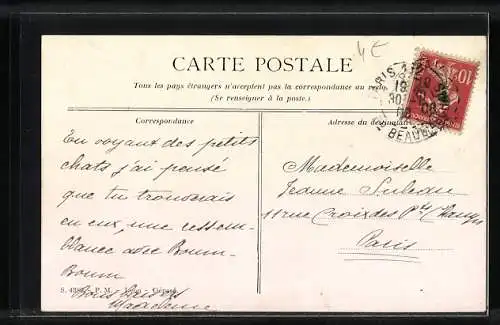 4E
CARTE POSTALE
Tous les pays étrangers n'acceptent pas la correspondance au recto
(Se renseigner à la poste.)
Correspondance
Adresse du destinataire
En voyant des petits
chats j'ai pensé
que tu trouverais
en eux, une ressem-
blance avec Boum-
Boum
Bons baisers
Madeleine
Mademoiselle
Jeanne
11 rue Croix des Pts Champs
Paris
PARIS
BEAUBOURG
10